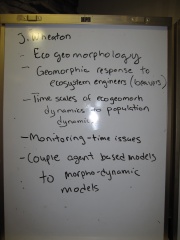 J. Wheaton
- Ecogeomorphology
- Geomorphic response to
ecosystem engineers (beavors)
- Time scales of ecogeomorph
dynamics to population
dynamics
- Monitoring - time issues
- Couple agent based models
to morpho-dynamic
models